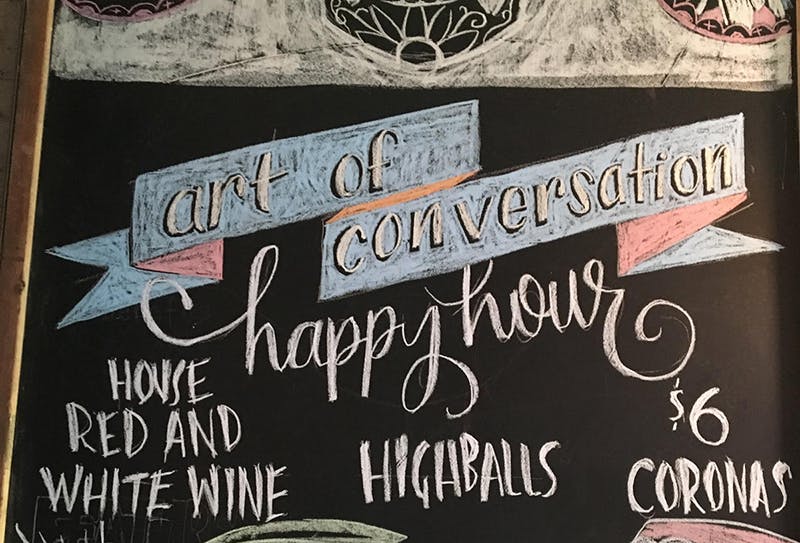 art of
conversation
happy hour
HOUSE
RED AND
WHITE WINE
HIGHBALLS
$6
CORONAS